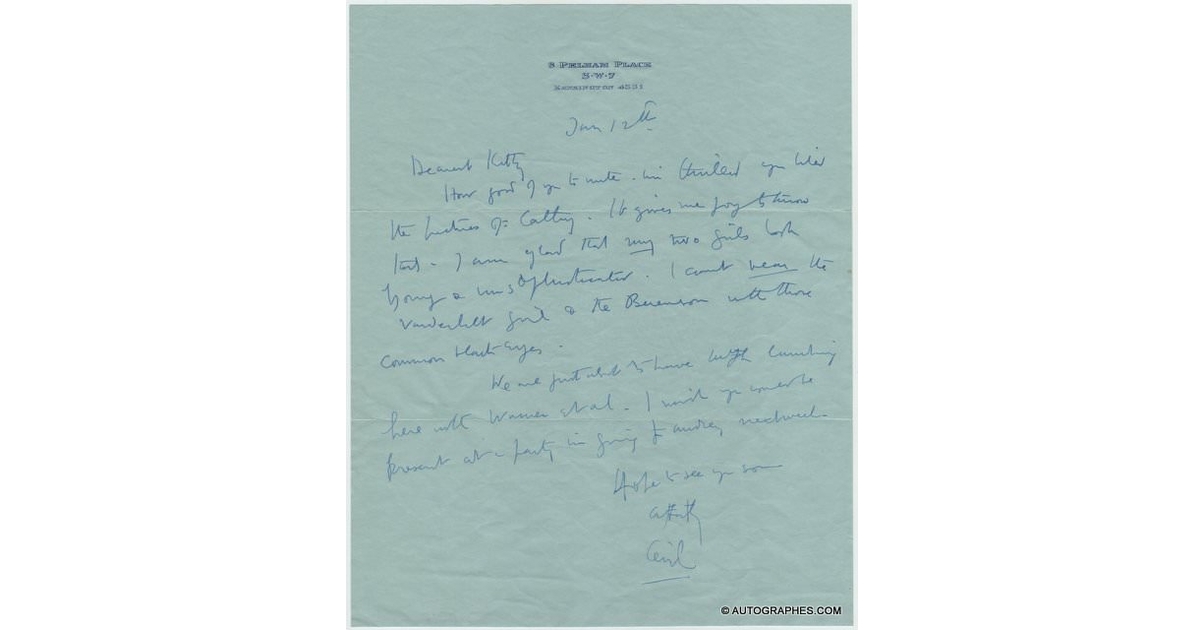 8 PELHAM PLACE
S·W·7
KENSINGTON 4831
Jan 12th
Dearest Kitty
How good of you to write. I'm thrilled you like
the pictures of Cathy. It gives me joy to know
that. I am glad that my two girls look
young & unsophisticated. I can't bear the
Vanderbilt girl & the Berenson with those
common black eyes.
We are just about to have lunching
here with Warner et al. I wish you could be
present at a party I'm giving for Audrey
Hope to see you soon
Cecil
© AUTOGRAPHES.COM